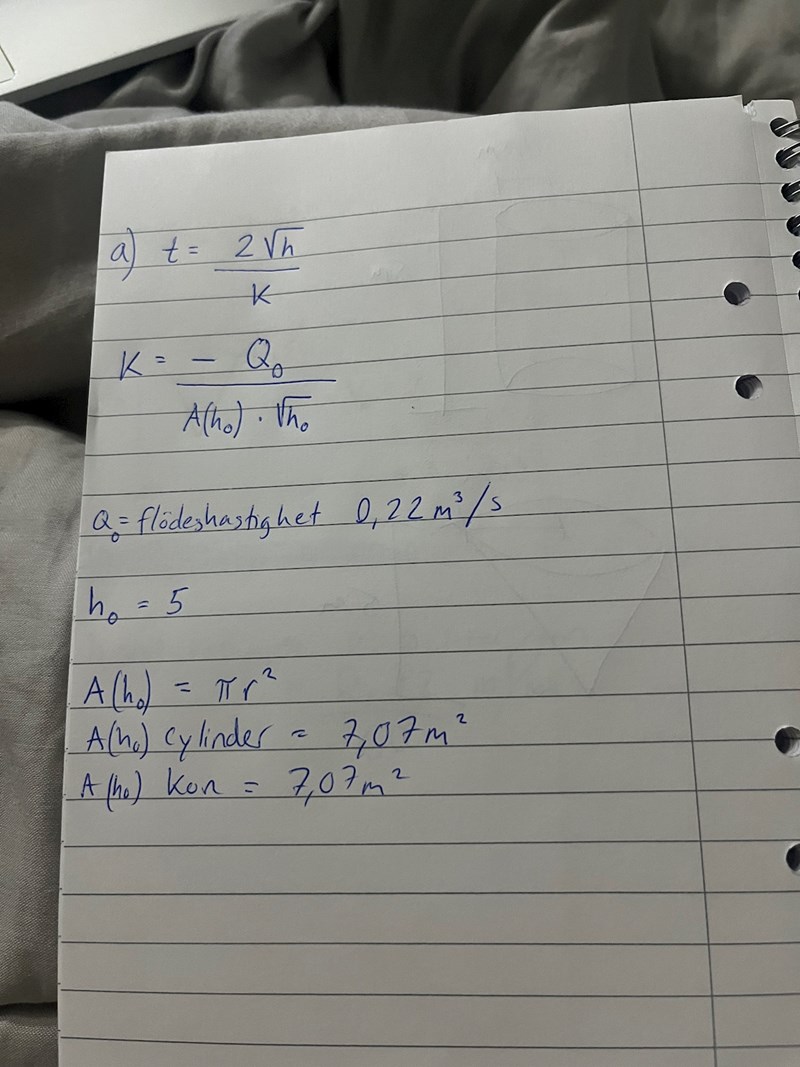 a) t = 2√h / K
K = - Q₀ / A(h₀) · √h₀
Q₀ = flödeshastighet 0,22 m³/s
h₀ = 5
A(h₀) = πr²
A(h₀) cylinder = 7,07 m²
A(h₀) kon = 7,07 m²